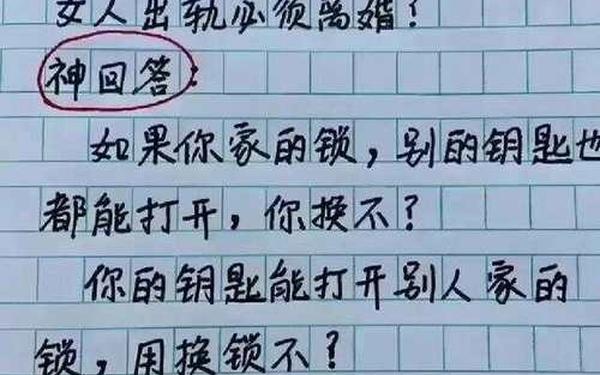 女人出轨必须离婚！
神回答：
如果你家的锁，别的钥匙也
都能打开，你换不？
你的钥匙能打开别人家的
锁，用换锁不？